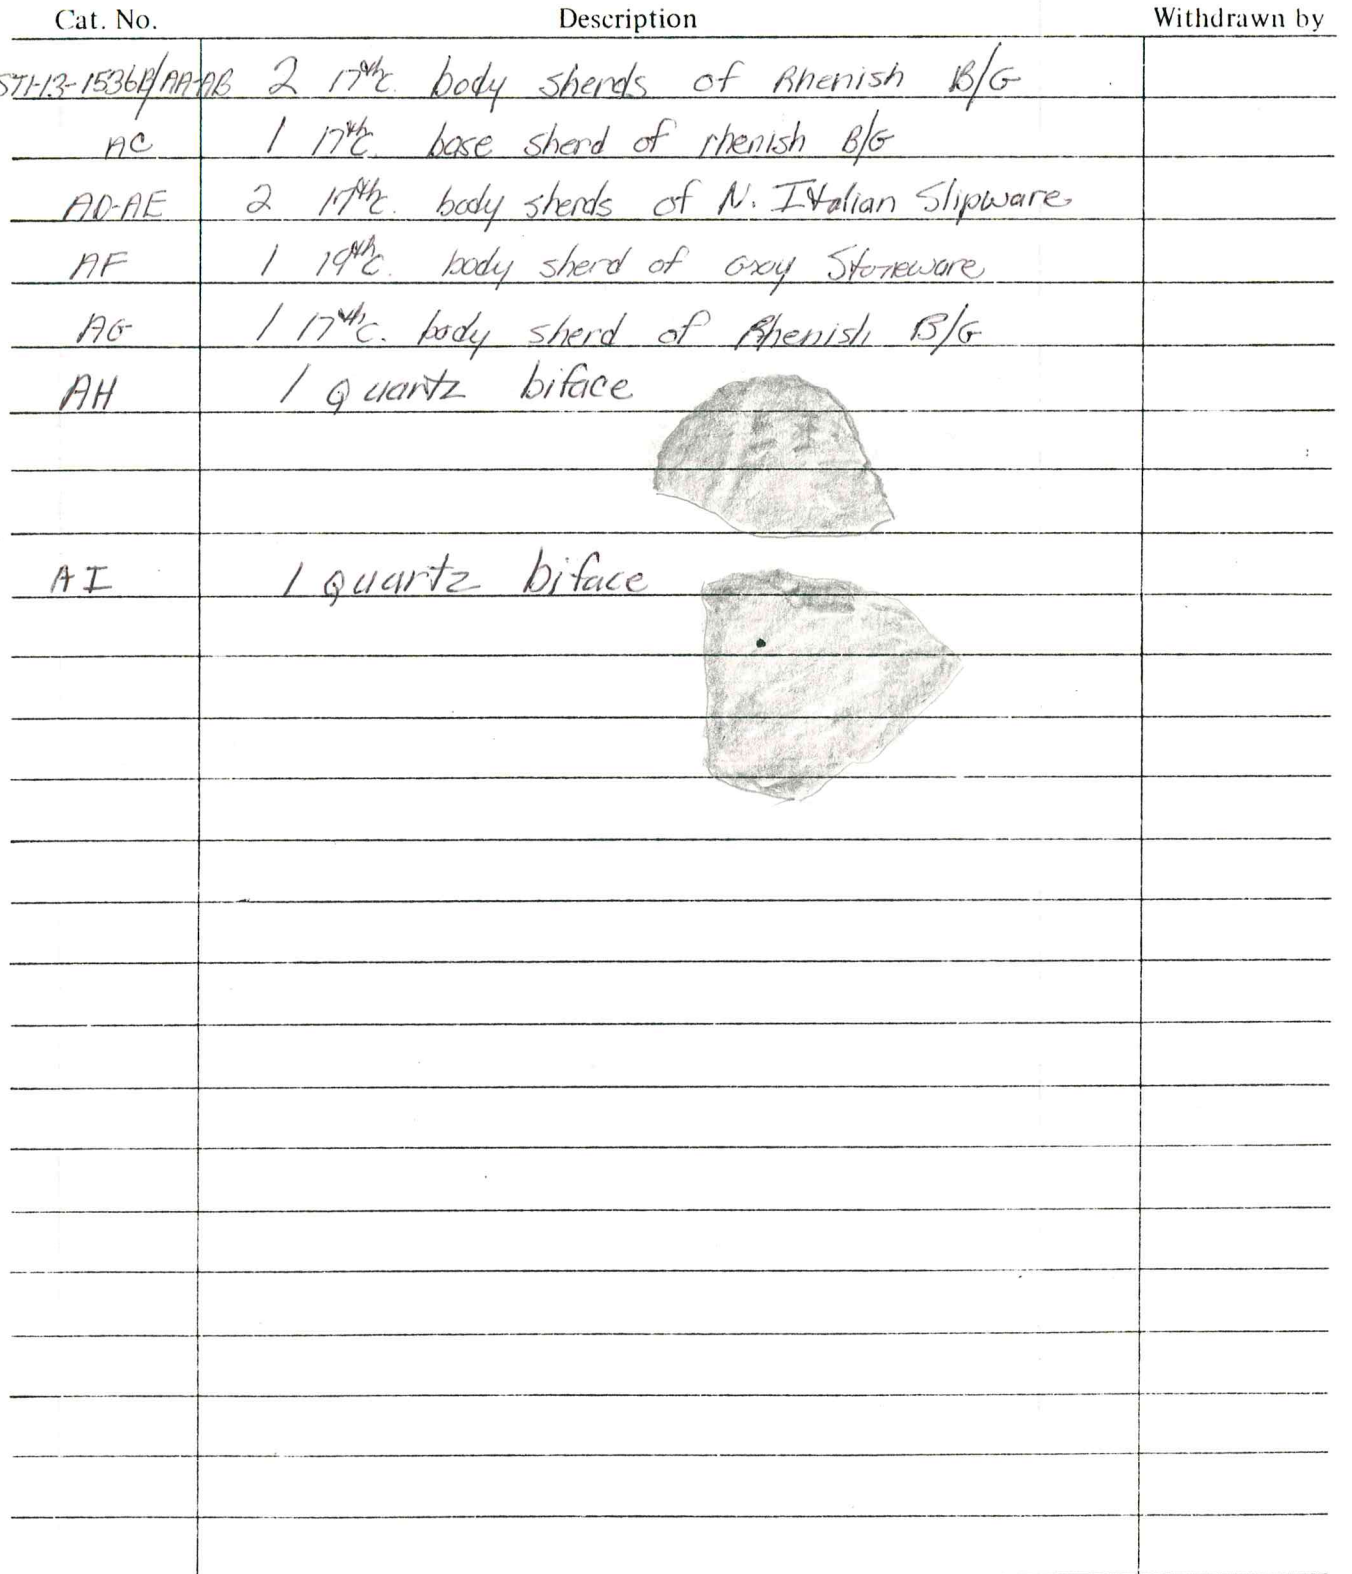 Cat. No. Description Withdrawn by
ST1-13-1536B/AA-AB 2 17thc. body sherds of Rhenish B/G
AC 1 17thc. base sherd of rhenish B/G
AD-AE 2 17thc. body sherds of N. Italian Slipware
AF 1 19thc. body sherd of Gray Stoneware
AG 1 17thc. body sherd of Rhenish B/G
AH 1 Quartz biface
AI 1 Quartz biface